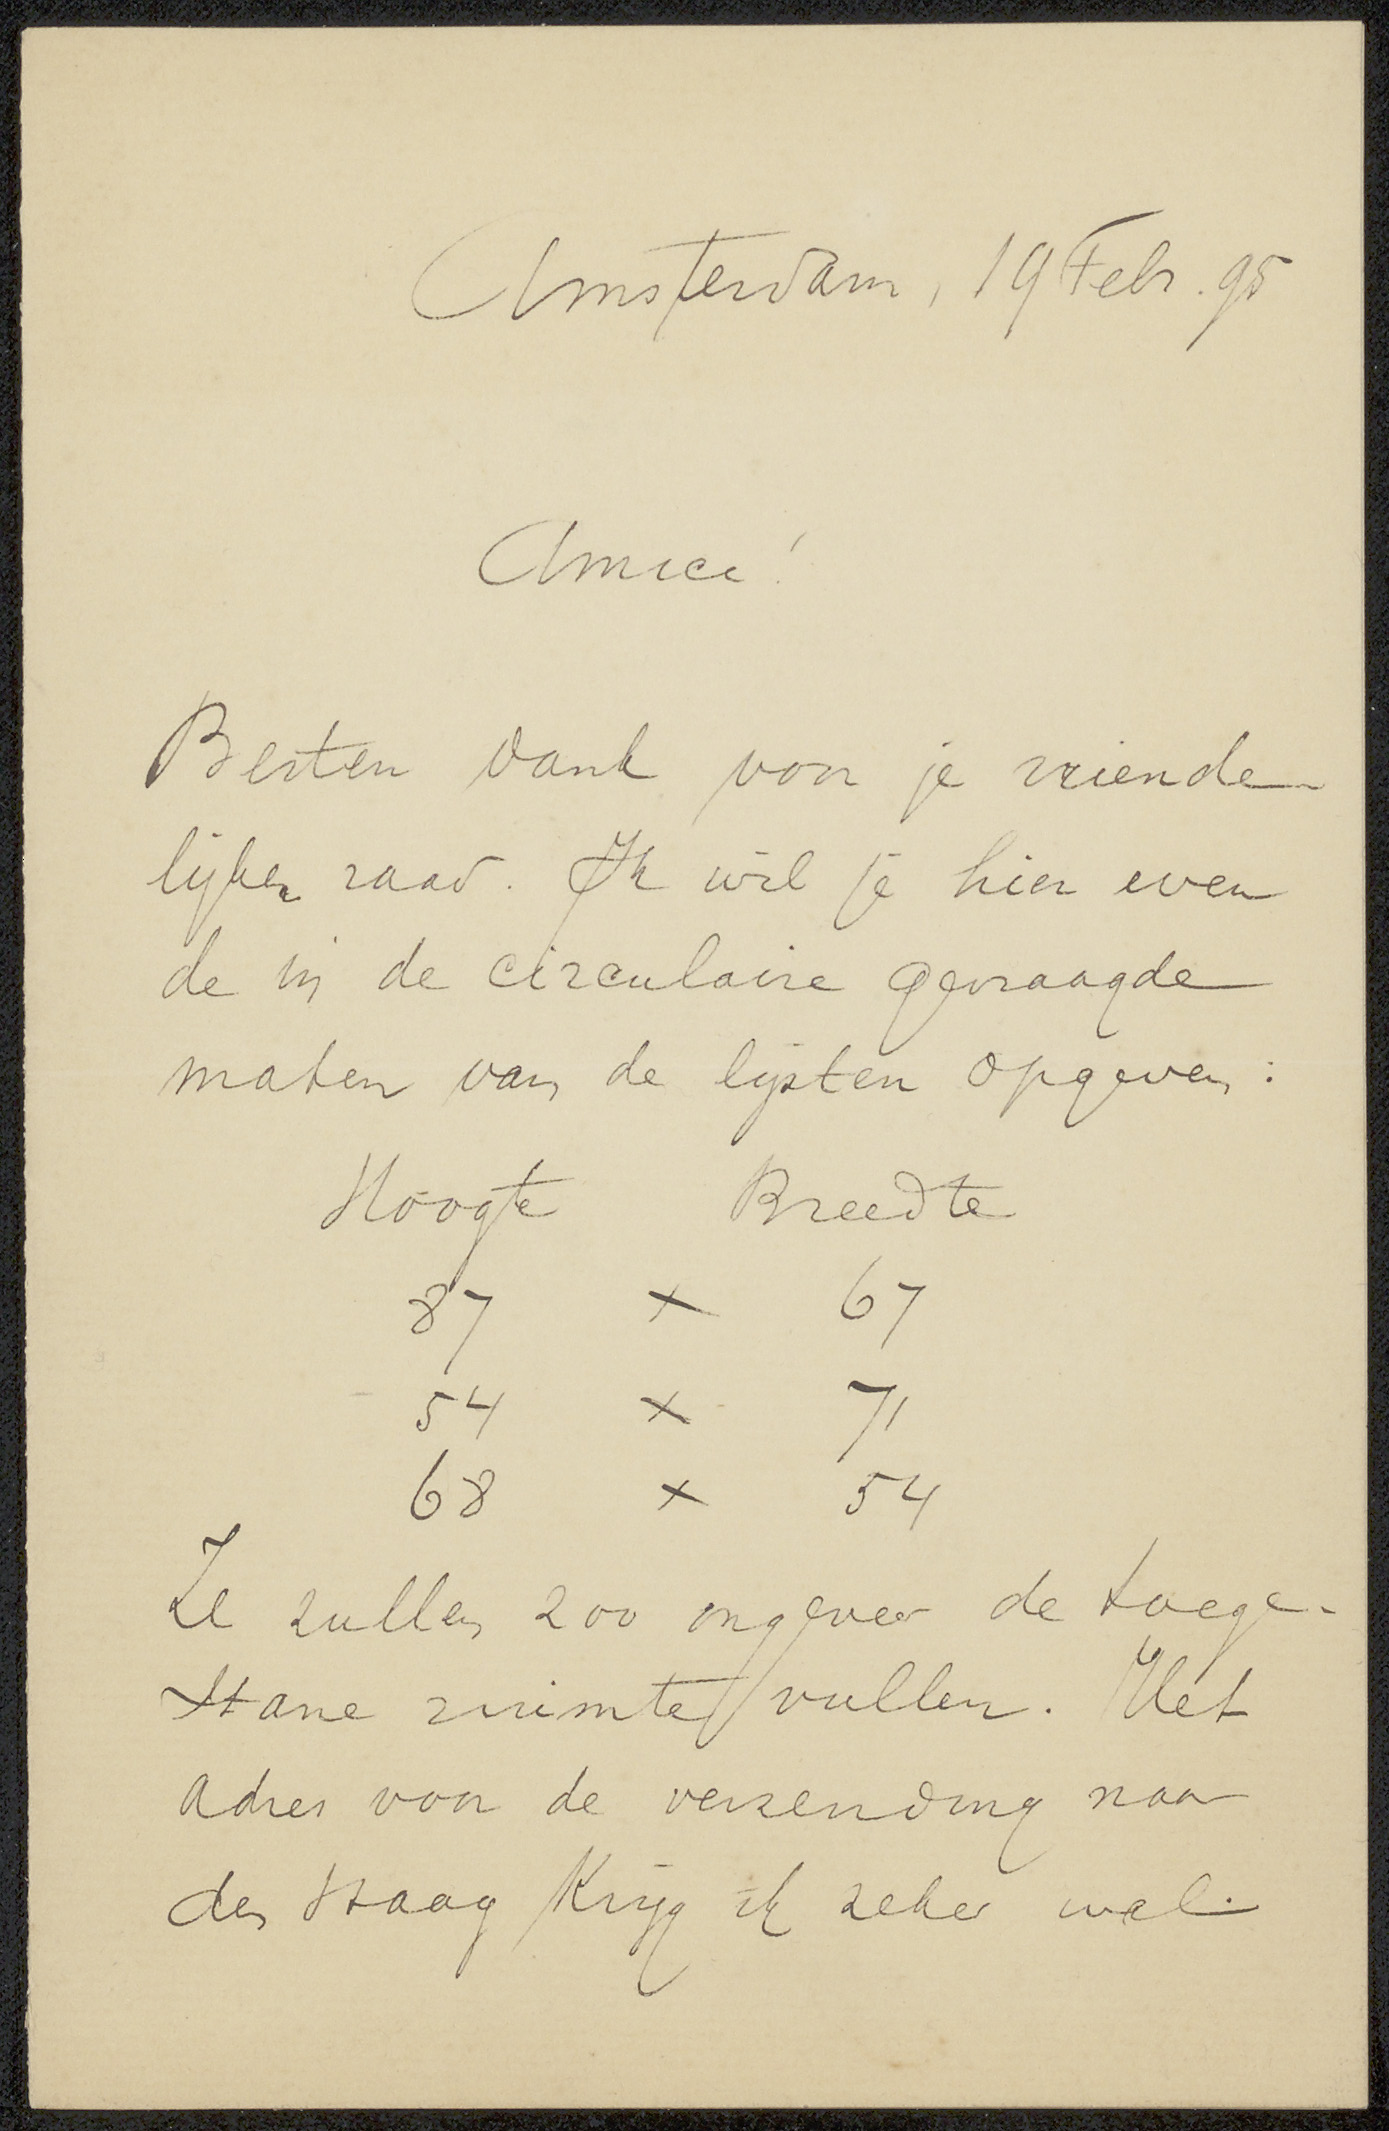 Amsterdam, 19 Febr. 95
Amice!
Besten dank voor je vriende-
lijken raad. Ik wil je hier even
de in de circulaire gevraagde
maten van de lijsten opgeven:
Hoogte Breedte
87 x 67
54 x 71
68 x 54
Ze zullen zoo ongeveer de toege-
stane ruimte vullen. Het
adres voor de verzending naar
den Haag krijg ik zeker wel.